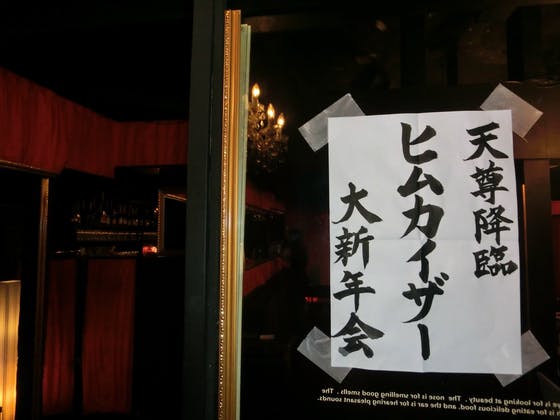 天尊降臨
ヒムカイザー
大新年会
is for looking at beauty . The nose is for smelling good smells . The
is for eating delicious food. and the ear is for hearing pleasant sounds.